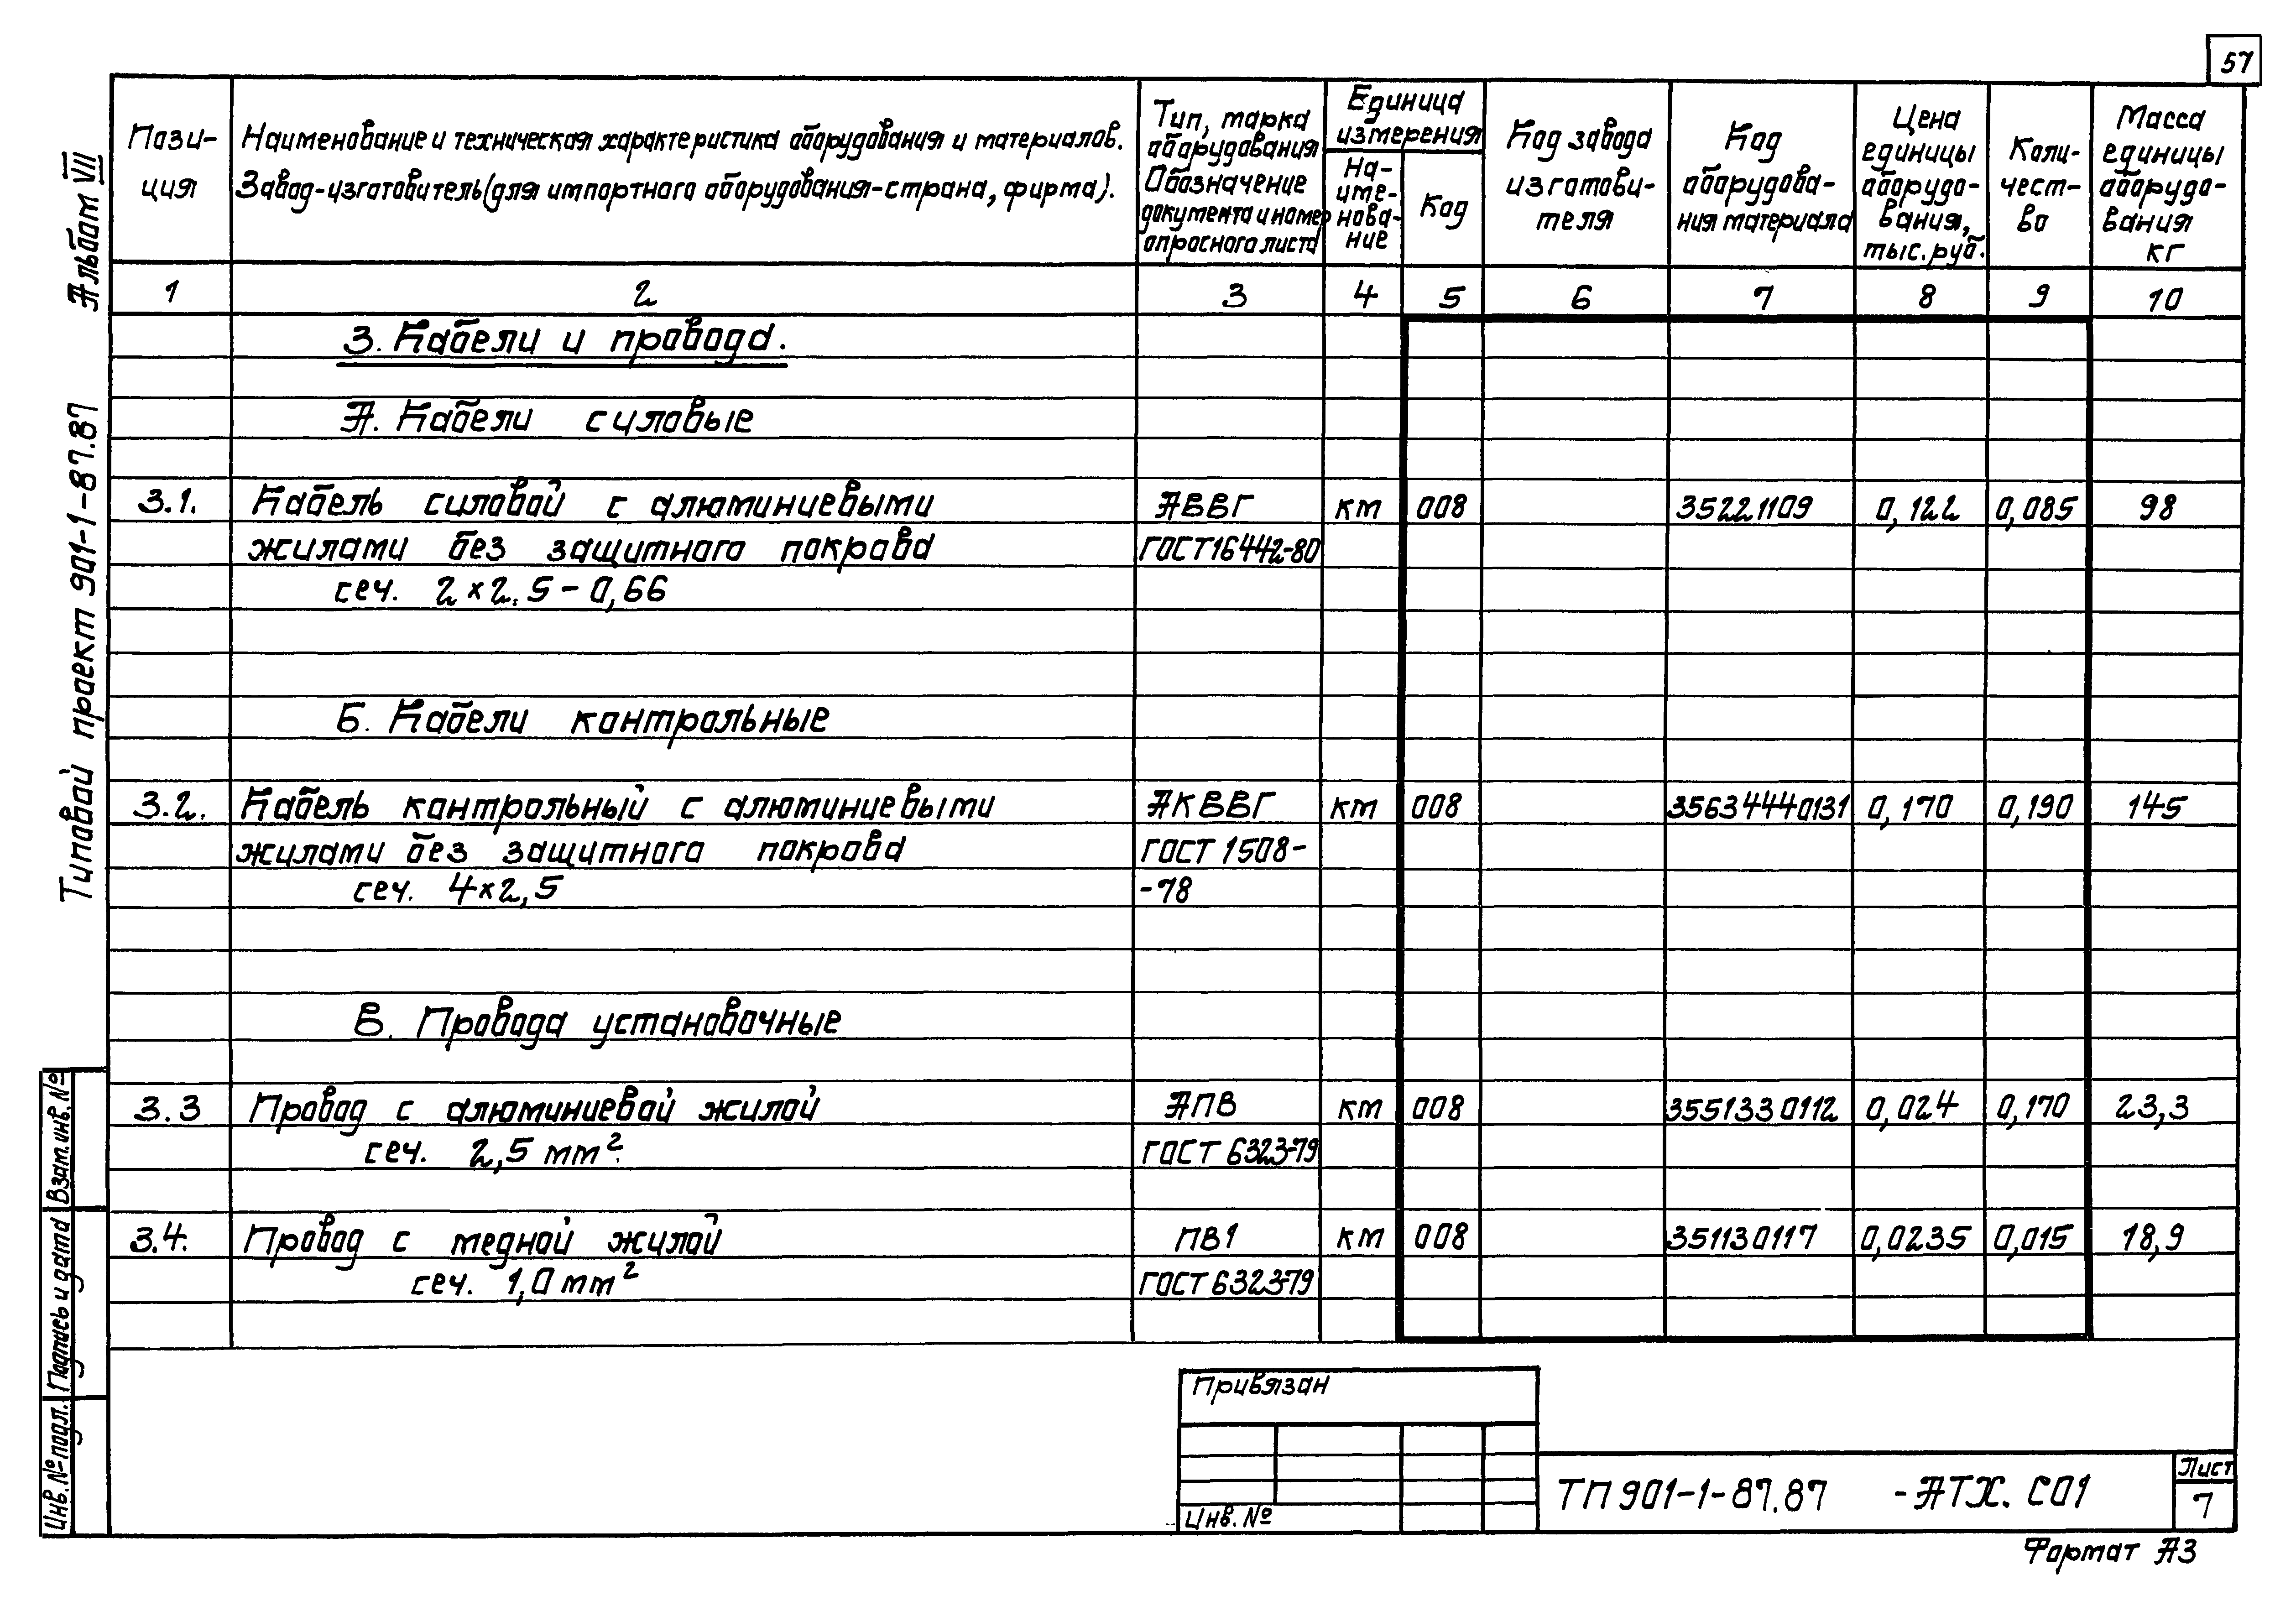 57
Пози-
ция
Наименование и техническая характеристика оборудования и материалов.
Завод-изготовитель (для импортного оборудования-страна, фирма).
Тип, марка
оборудования
Обозначение
документа и номер
опросного листа
Единица
измерения
На-
име-
нова-
ние
Код
Код завода
изготови-
теля
Код
оборудова-
ния материала
Цена
единицы
оборудо-
вания,
тыс. руб.
Коли-
чест-
во
Масса
единицы
оборудо-
вания
кг
1 2 3 4 5 6 7 8 9 10
3. Кабели и провода.
А. Кабели силовые
3.1. Кабель силовой с алюминиевыми АВВГ км 008 35221109 0,122 0,085 98
жилами без защитного покрова ГОСТ 16442-80
сеч. 2×2.5-0,66
Б. Кабели контрольные
3.2. Кабель контрольный с алюминиевыми АКВВГ км 008 35634440131 0,170 0,190 145
жилами без защитного покрова ГОСТ 1508-
сеч. 4×2,5 -78
В. Провода установочные
3.3 Провод с алюминиевой жилой АПВ км 008 3551330112 0,024 0,170 23,3
сеч. 2,5 мм². ГОСТ 6323-79
3.4. Провод с медной жилой ПВ1 км 008 351130117 0,0235 0,015 18,9
сеч. 1,0 мм² ГОСТ 6323-79
Привязан
Инв. №
ТП 901-1-87.87 -АТХ. СО1
Лист
7
Формат А3
Альбом VII
Типовой проект 901-1-87.87
Взам. инв. №
Подпись и дата
Инв. № подл.